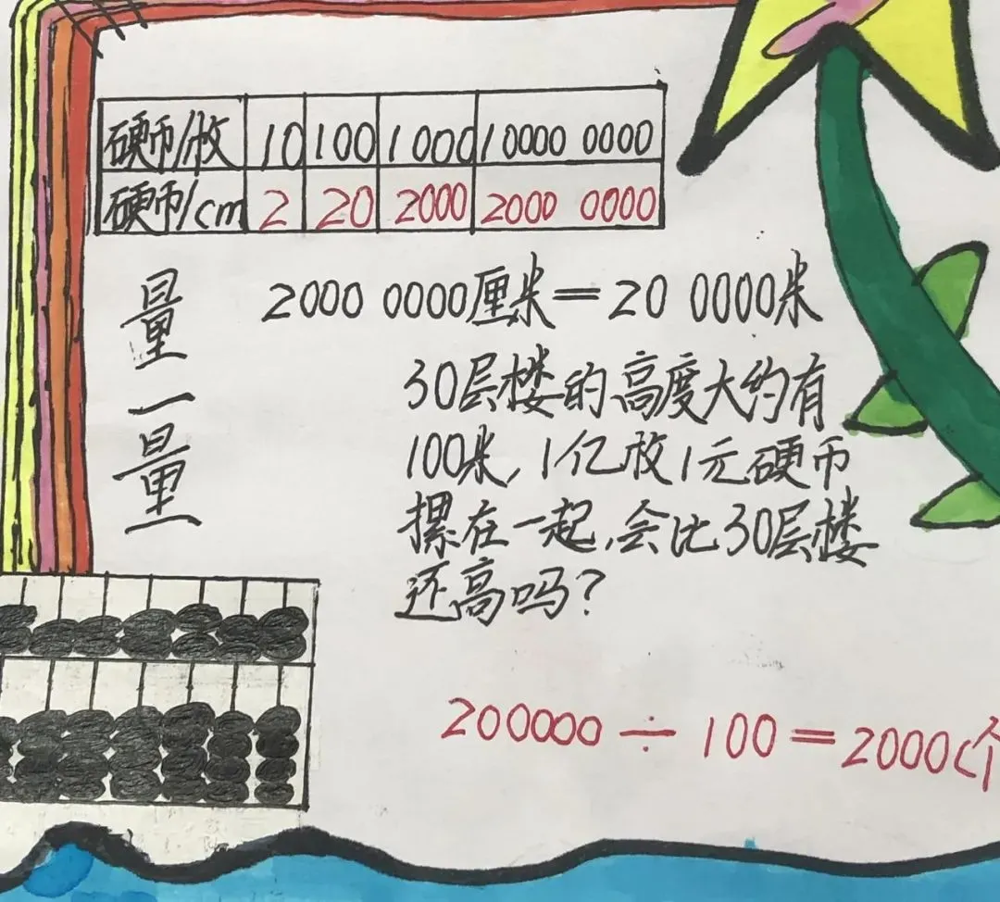 硬币/枚 10 100 1000 10000 0000
硬币/cm 2 20 2000 2000 0000
量一量
2000 0000厘米=20 0000米
30层楼的高度大约有
100米,1亿枚1元硬币
摞在一起,会比30层楼
还高吗?
200000÷100=2000(个